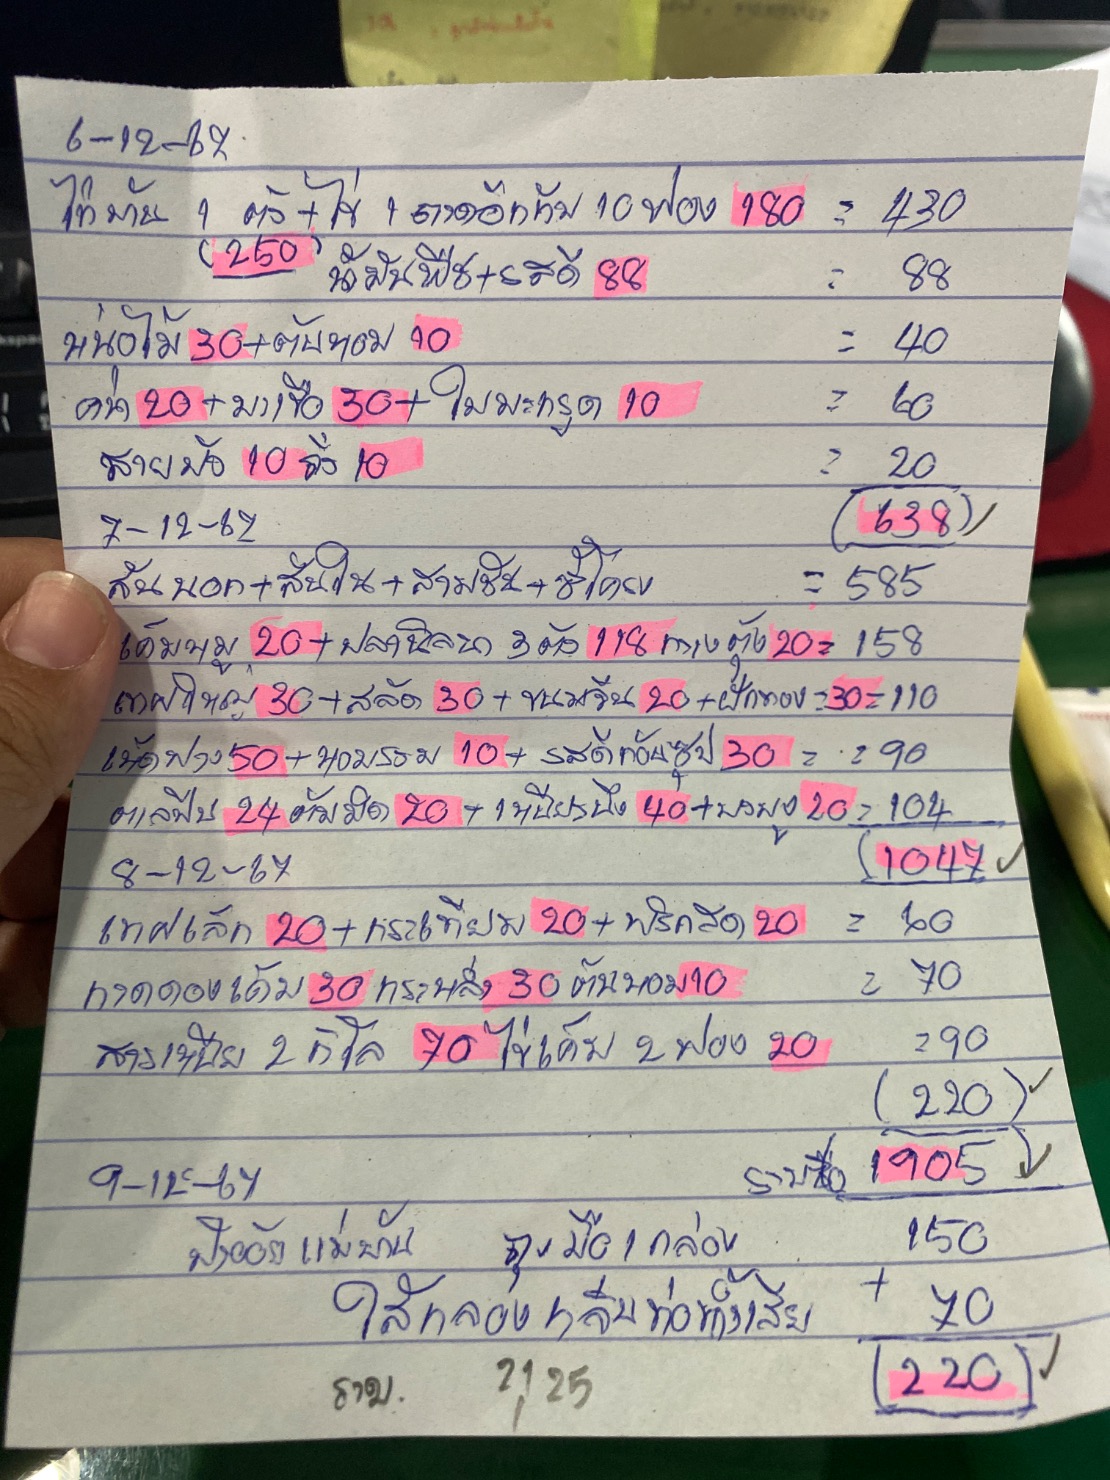 6-12-67
ไก่บ้าน 1 ตัว + ไข่ 1 ถาดอีกกับ 10 ฟอง 180 = 430
(250)
น้ำมันพืช + รสดี 88 = 88
หน่อไม้ 30 + ต้นหอม 10 = 40
คน่า 20 + มาเขือ 30 + ใบมะกรูด 10 = 60
สายบัว 10 10 = 20
(638) ✓
7-12-67
สันนอก + สันใน + สามชั้น + ซี่โครง = 585
เค้มหมู 20 + ปลานิลนา 3 ตัว 118 กวางตุ้ง 20 = 158
เทศใหญ่ 30 + สลัด 30 + ขนมจีน 20 + ฝักทอง = 30 = 110
เห็ดฟาง 50 + หอมรวม 10 + รสดีก้อนซุป 30 = = 90
24 20 + เหนียวนึ่ง 40 + บวบงู 20 = 104
(1047 ✓
8-12-67
เทศเล็ก 20 + กระเทียม 20 + พริกสด 20 = 60
กาดดองเค้ม 30 กระหล่ำ 30 ต้นหอม 10 = 70
สารเหนียว 2 กิโล 70 ไข่เค็ม 2 ฟอง 20 = 90
(220) ✓
รายชื่อ 1905 ✓
9-12-67
แม่บ้าน ถุงมือ 1 กล่อง 150
ใส้กลอง กลิ่นท่อทิ้งเสีย + 70
(220) ✓
รวม. 2,125